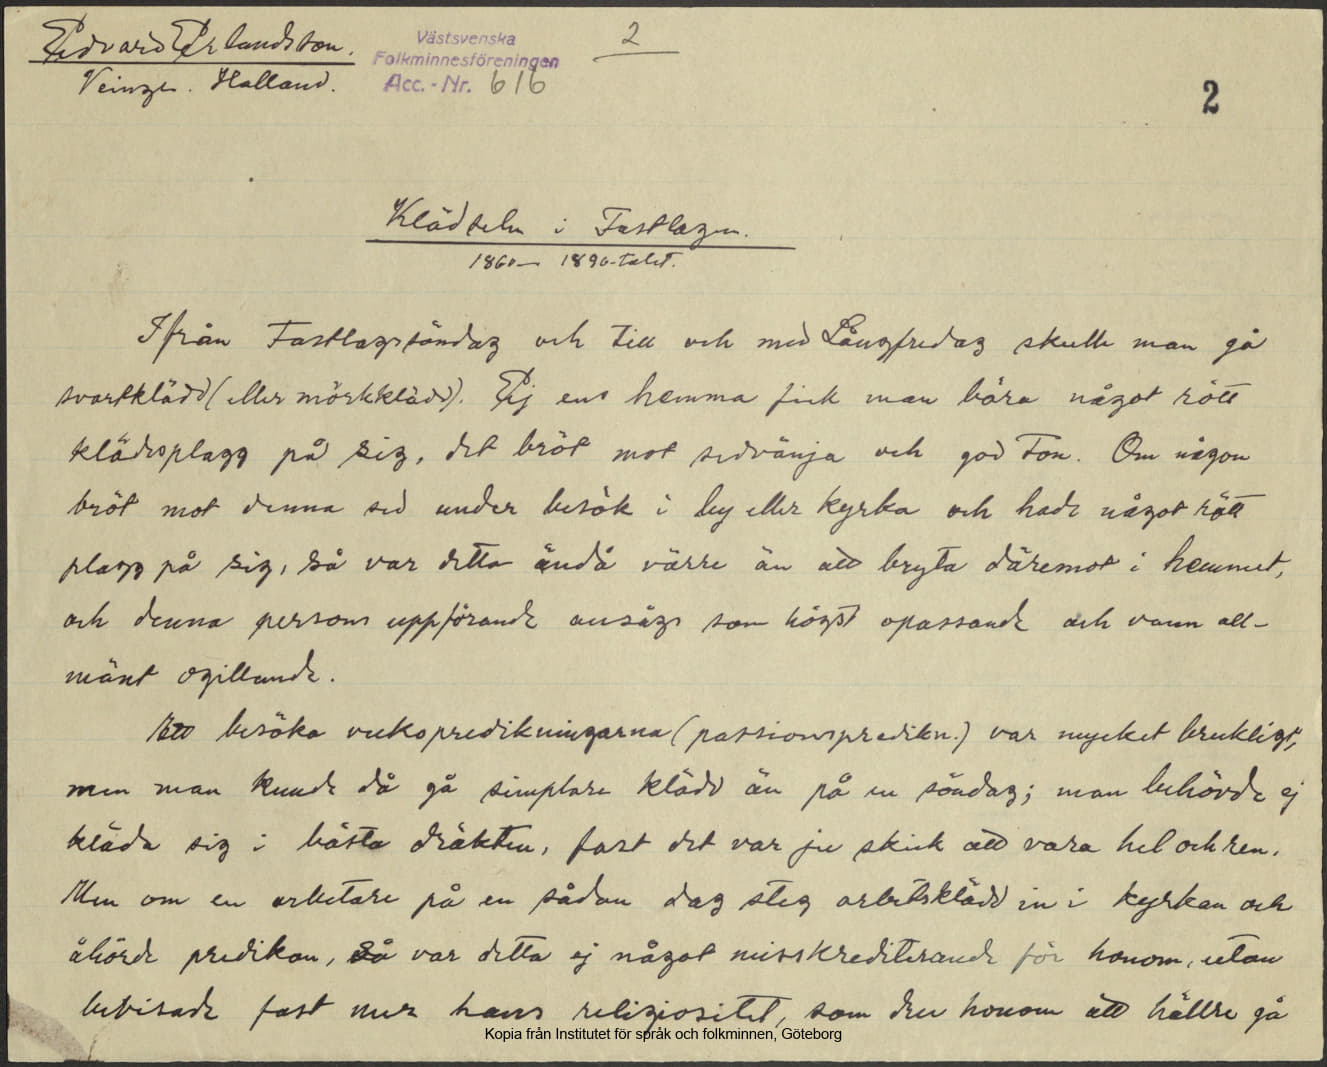 Edvard Erlandsson.
Veinge. Halland.
Västsvenska
Folkminnesföreningen
Acc.-Nr. 616
2
2
Klädseln i Fastlagen.
1860– 1890-talet.
Ifrån Fastlagssöndag och till och med Långfredag skulle man gå
svartklädd (eller mörkklädd). Ej ens hemma fick man bära något rött
klädesplagg på sig, det bröt mot sedvänja och god ton. Om någon
bröt mot denna sed under besök i by eller kyrka och hade något rött
plagg på sig, så var detta ändå värre än att bryta däremot i hemmet,
och denna persons uppförande ansågs som högst opassande och vann all-
mänt ogillande.
Att besöka veckopredikningarna (passionspredikn.) var mycket brukligt,
men man kunde då gå simplare klädd än på en söndag; man behövde ej
kläda sig i bästa dräkten, fast det var ju skick att vara hel och ren.
Men om en arbetare på en sådan dag steg arbetsklädd in i kyrkan och
åhörde predikan, så var detta ej något misskrediterande för honom, utan
bevisade fast mer hans religiositet, som drev honom att hällre gå
Kopia från Institutet för språk och folkminnen, Göteborg